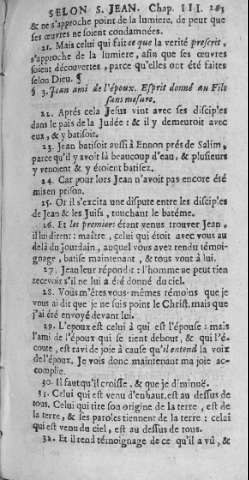 SELON S. JEAN. Chap. III. 263
& ne s'approche point de la lumiere, de peur que
ses œuvres ne soient condamnées.
21. Mais celui qui fait ce que la verité prescrit,
s'approche de la lumiere, afin que ses œuvres
soient découvertes, parce qu'elles ont été faites
selon Dieu. ¶
§ 3. Jean ami de l'époux. Esprit donné au Fils
sans mesure.
22. Après cela Jesus vint avec ses disciples
dans le païs de la Judée: & il y demeuroit avec
eux, & y batisoit.
23. Jean batisoit aussi à Ennon prés de Salim,
parce qu'il y avoit là beaucoup d'eau, & plusieurs
y venoient & y étoient batisez.
24. Car pour lors Jean n'avoit pas encore été
mis en prison.
25. Or il s'excita une dispute entre les disciples
de Jean & les Juifs, touchant le batême.
26. Et les premiers étant venus trouver Jean,
il lui dirent: maître, celui qui étoit avec vous au
delà du Jourdain, auquel vous avez rendu témoi-
gnage, batise maintenant, & tous vont à lui.
27. Jean leur répondit: l'homme ne peut rien
recevoir s'il ne lui a été donné du ciel.
28. Vous m'êtes vous-mêmes témoins que je
vous ai dit que je ne suis point le Christ, mais que
j'ai été envoyé devant lui.
29. L'époux est celui à qui est l'épouse: mais
l'ami de l'époux qui se tient debout, & qui l'é-
coute, est ravi de joie à cause qu'il entend la voix
de l'époux. Je vois donc maintenant ma joie ac-
complie.
30. Il faut qu'il croisse, & que je diminuë.
31. Celui qui est venu d'enhaut, est au dessus de
tous. Celui qui tire son origine de la terre, est de
la terre, & ses paroles tiennent de la terre: celui
qui est venu du ciel, est au dessus de tous.
32. Et il rend témoignage de ce qu'il a vû, &